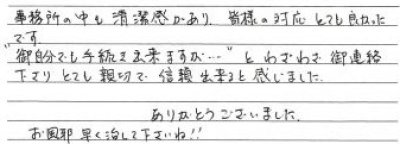 事務所の中も清潔感があり、皆様の対応とても良かった
です。
"御自分でも手続き出来ますが…"とわざわざ御連絡
下さりとても親切で信頼出来ると感じました。
ありがとうございました。
お風邪早く治して下さいね!!